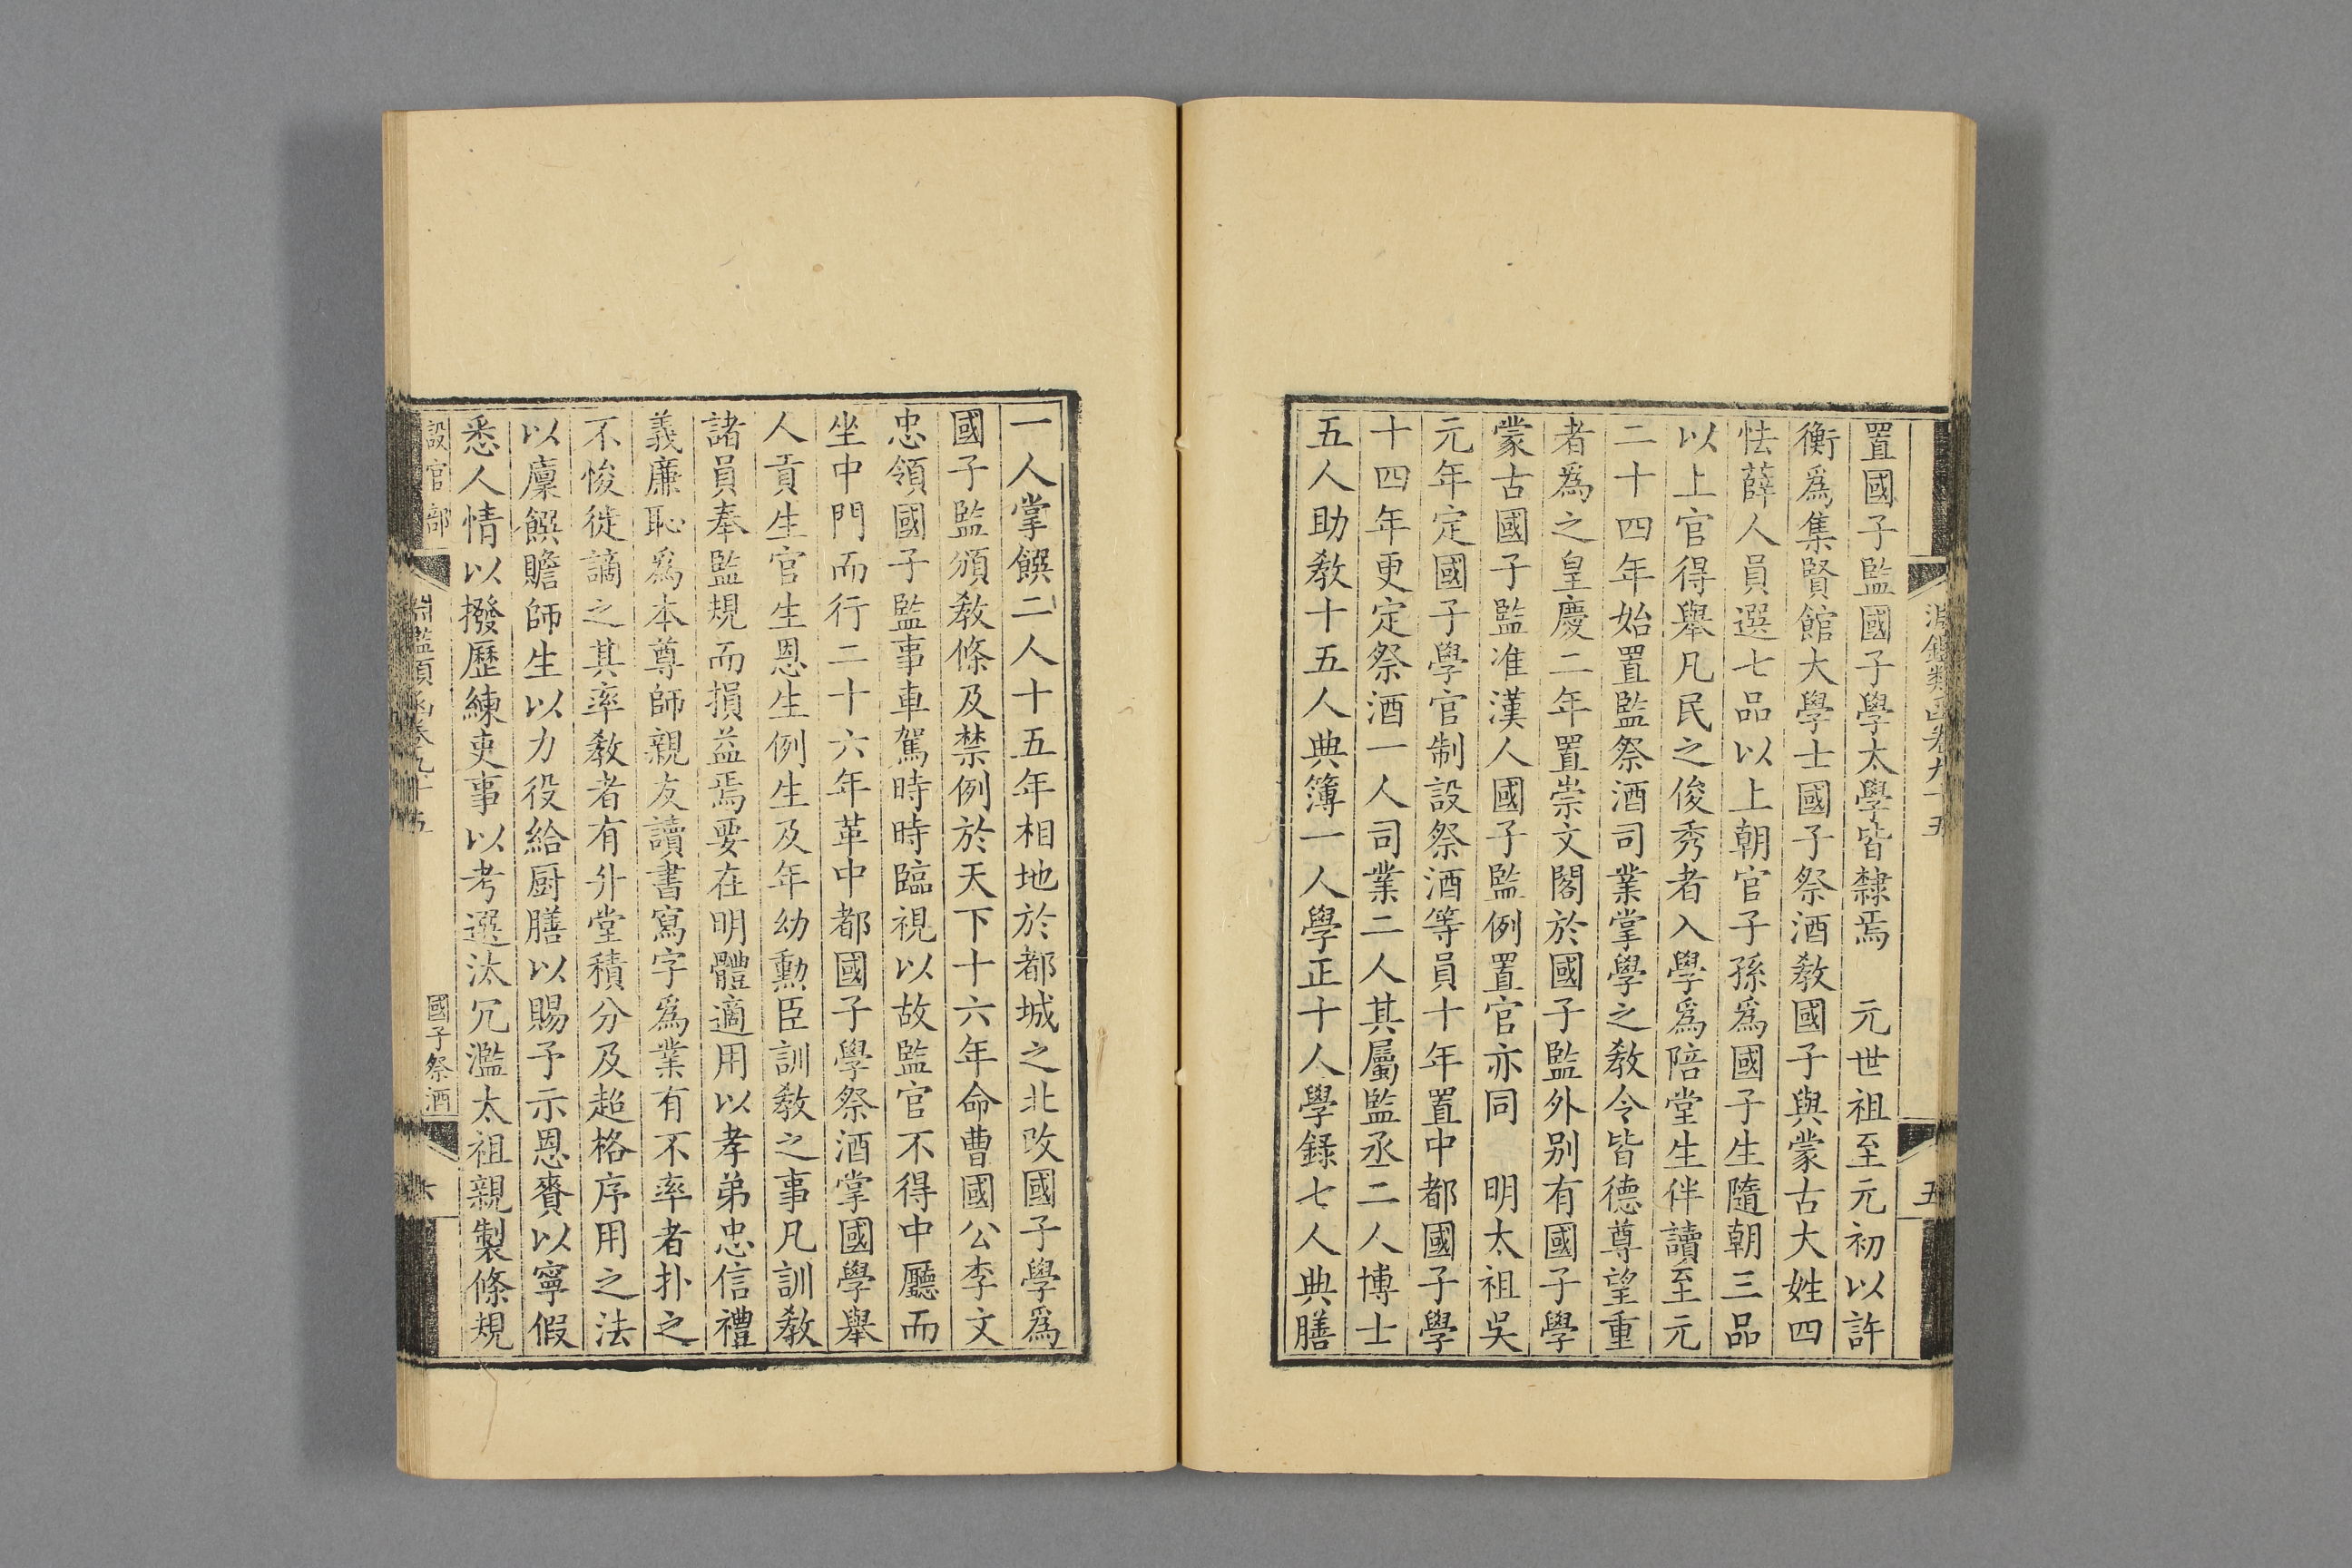 淵鑑類函卷九十五
五
置國子監國子學太學皆隸焉　元世祖至元初以許
衡爲集賢館大學士國子祭酒敎國子與蒙古大姓四
怯薛人員選七品以上朝官子孫爲國子生隨朝三品
以上官得舉凡民之俊秀者入學爲陪堂生伴讀至元
二十四年始置監祭酒司業掌學之敎令皆德尊望重
者爲之皇慶二年置崇文閣於國子監外别有國子學
蒙古國子監准漢人國子監例置官亦同　明太祖吳
元年定國子學官制設祭酒等員十年置中都國子學
十四年更定祭酒一人司業二人其屬監丞二人博士
五人助敎十五人典簿一人學正十人學錄七人典膳
一人掌饌二人十五年相地於都城之北改國子學爲
國子監頒敎條及禁例於天下十六年命曹國公李文
忠領國子監事車駕時時臨視以故監官不得中廳而
坐中門而行二十六年革中都國子學祭酒掌國學舉
人貢生官生恩生例生及年幼勳臣訓敎之事凡訓敎
諸員奉監規而損益焉要在明體適用以孝弟忠信禮
義廉恥爲本尊師親友讀書寫字爲業有不率者扑之
不悛徙謫之其率敎者有升堂積分及超格序用之法
以廩饌贍師生以力役給厨膳以賜予示恩賚以寧假
悉人情以撥歷練吏事以考選汰冗濫太祖親製條規
設官部
淵鑑類函卷九十五
國子祭酒
六